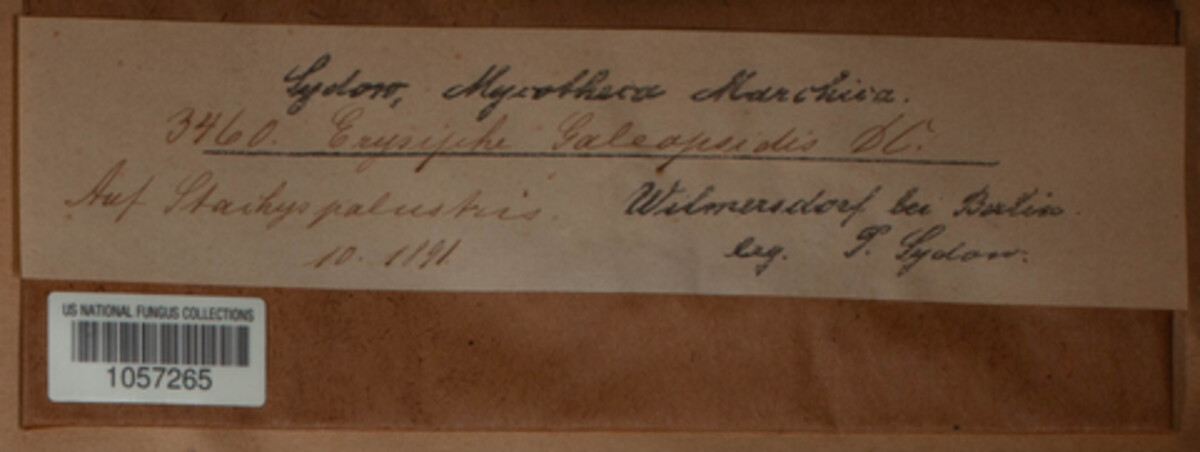 Sydow, Mycotheca Marchica.
3460. Erysiphe Galeopsidis DC.
Auf Stachys palustris. Wilmersdorf bei Berlin.
10. 1891. leg. P. Sydow.
US NATIONAL FUNGUS COLLECTIONS
1057265